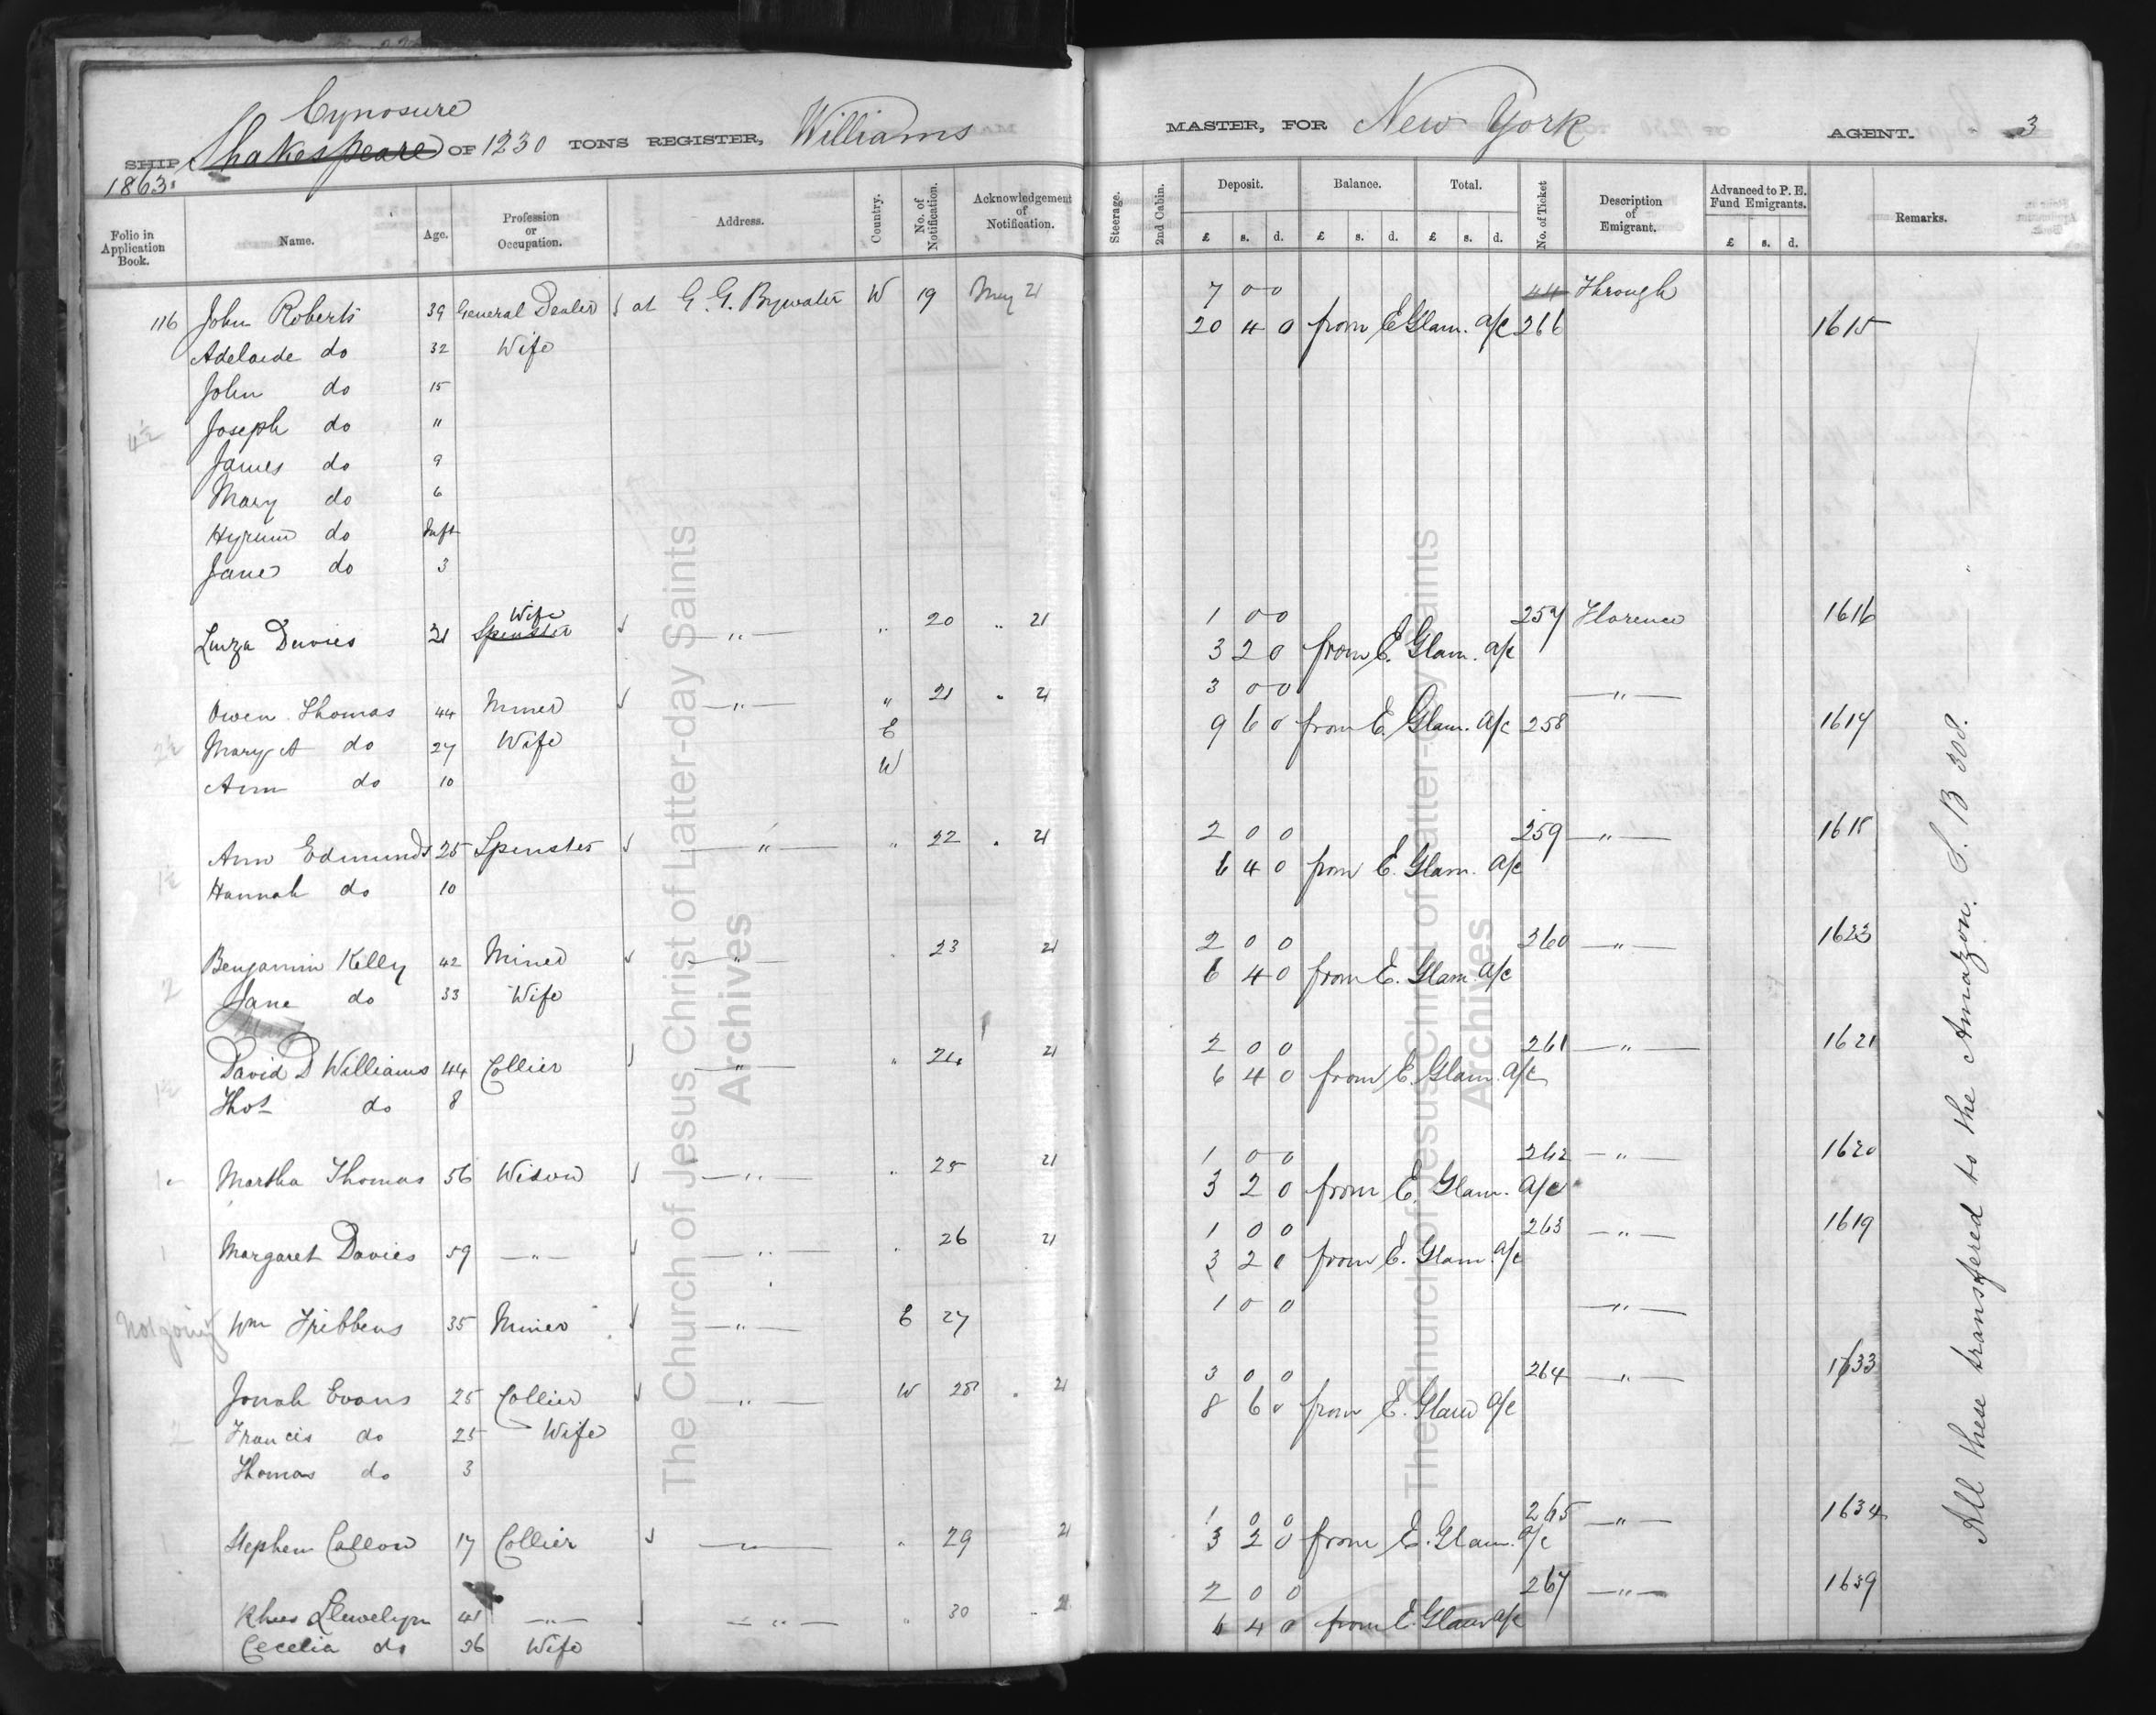 Cynosure
SHIP Shakespeare OF 1230 TONS REGISTER, Williams MASTER, FOR New York AGENT. 3
1863.
Folio in Application Book. Name. Age. Profession or Occupation. Address. Country. No. of Notification. Acknowledgement of Notification. Steerage. 2nd Cabin. Deposit. Balance. Total. No. of Ticket Description of Emigrant. Advanced to P. E. Fund Emigrants. Remarks.
£ s. d. £ s. d. £ s. d. £ s. d.
116 John Roberts 39 General Dealer at G. G. Bywater W 19 May 21 7 0 0 44 Through
20 4 0 from E Glam. a/c 266 1615
Adelaide do 32 Wife
John do 15
4½ Joseph do 11
James do 9
Mary do 6
Hyrum do Inft
Jane do 3
Wife
Luiza Davies 21 Spinster — " — " 20 " 21 1 0 0 257 Florence 1616
3 2 0 from E. Glam. a/c
Owen Thomas 44 Miner — " — " 21 " 21 3 0 0 — " —
E 9 6 0 from E. Glam. a/c 258 1617
2½ Mary A do 27 Wife
W
Ann do 10
Ann Edmunds 25 Spinster — " — " 22 " 21 2 0 0 259 — " — 1618
6 4 0 from E. Glam. a/c
1½ Hannah do 10
Benjamin Kelly 42 Miner — " — " 23 21 2 0 0 260 — " — 1623
6 4 0 from E. Glam a/c
2 Jane do 33 Wife
David D Williams 44 Collier — " — " 24 21 2 0 0 261 — " — 1621
6 4 0 from E. Glam. a/c
1½ Thos do 8
1 Martha Thomas 56 Widow — " — " 25 21 1 0 0 262 — " — 1620
3 2 0 from E. Glam. a/c
1 Margaret Davies 59 — " — — " — " 26 21 1 0 0 263 — " — 1619
3 2 0 from E. Glam a/c
Not going Wm Gribbens 35 Miner — " — E 27 1 0 0 — " —
Jonah Evans 25 Collier — " — W 28 " 21 3 0 0 264 — " — 1633
8 6 0 from E. Glam a/c
2 Francis do 25 Wife
Thomas do 3
1 Stephen Callow 17 Collier — " — " 29 21 1 0 0 265 — " — 1634
3 2 0 from E. Glam. a/c
Rhees Llewelyn 41 — " — — " — " 30 " 21 2 0 0 267 — " — 1639
6 4 0 from E. Glam a/c
Cecelia do 36 Wife
All these transfered to the Amazon. S. B 308.
The Church of Jesus Christ of Latter-day Saints
Archives
The Church of Jesus Christ of Latter-day Saints
Archives